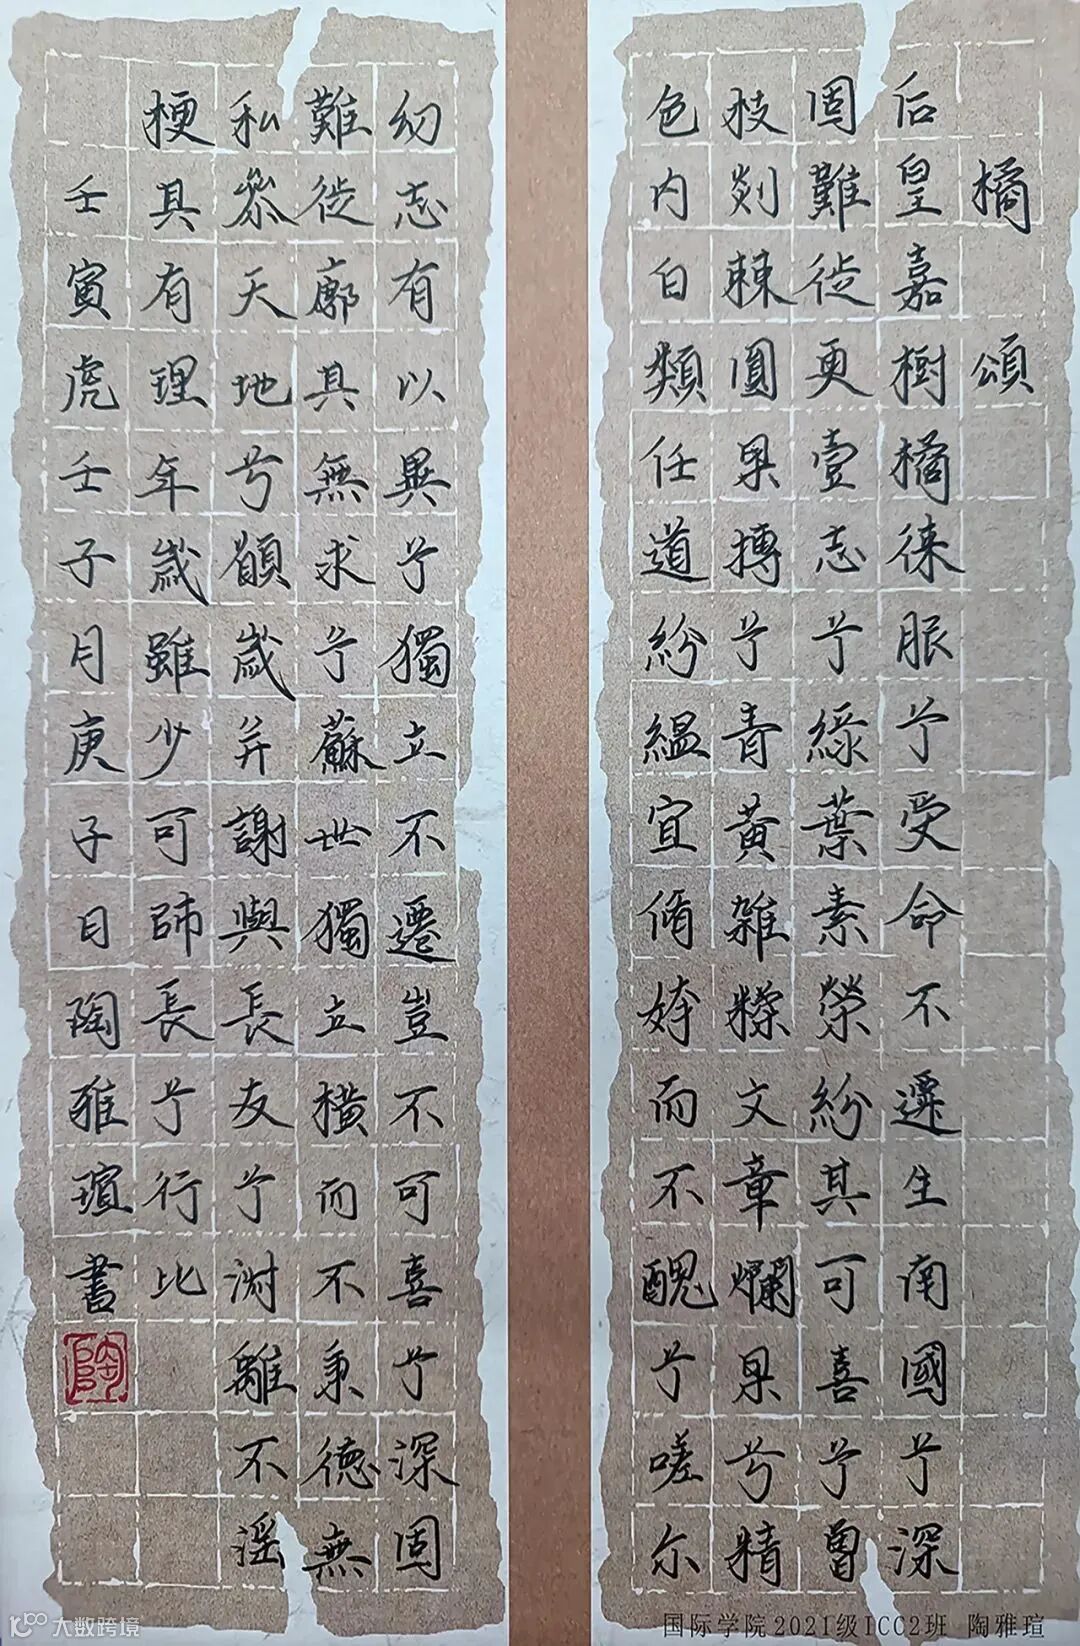 橘頌
后皇嘉樹橘徠服兮受命不遷生南國兮深
固難徙更壹志兮綠葉素榮紛其可喜兮曾
枝剡棘圓果摶兮青黃雜糅文章爛果兮精
色内白類任道紛緼宜脩姱而不醜兮嗟尔
幼志有以異兮獨立不遷豈不可喜兮深固
難徙廓其無求兮蘇世獨立橫而不秉德無
私參天地兮願歲并謝與長友兮淑離不淫
梗其有理年歲雖少可師長兮行比
壬寅虎壬子月庚子日陶雅瑄書
陶
国际学院2021级ICC2班 陶雅瑄
大数跨境